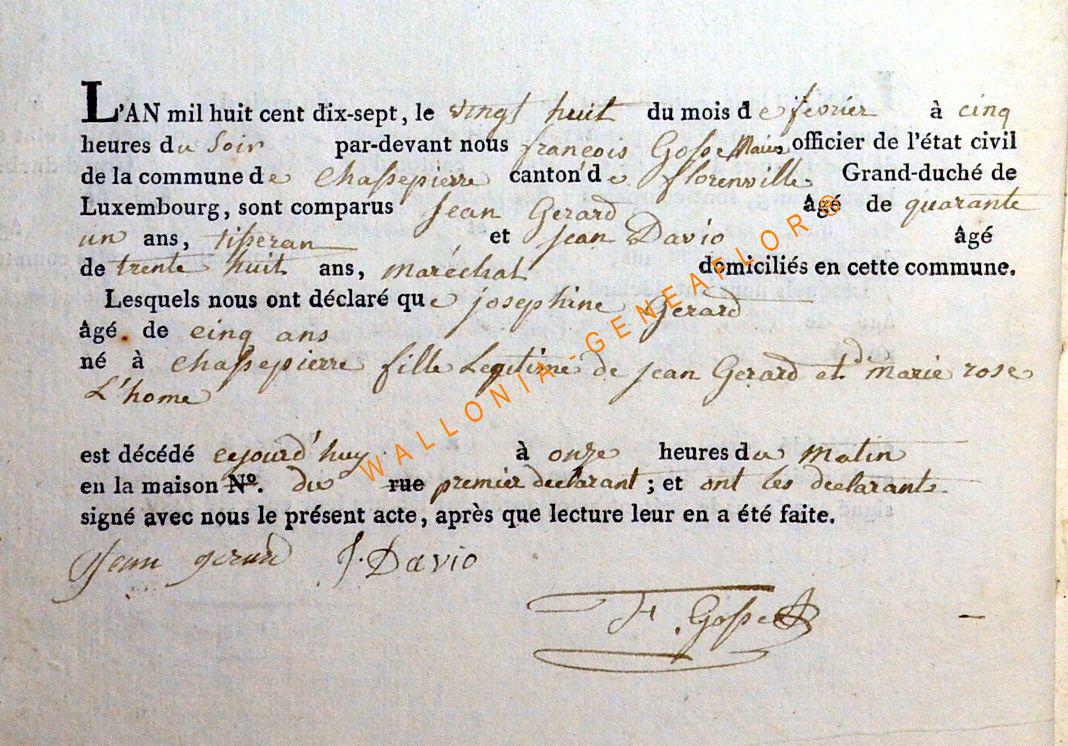 L'AN mil huit cent dix-sept, le vingt huit du mois de fevrier à cinq
heures du Soir par-devant nous françois Gosse Maire officier de l'état civil
de la commune de Chassepierre canton de florenville Grand-duché de
Luxembourg, sont comparus Jean Gerard âgé de quarante
un ans, tisseran et Jean Davio âgé
de trente huit ans, marechal domiciliés en cette commune.
Lesquels nous ont déclaré que josephine Gerard
âgé de cinq ans
né à Chassepierre fille Legitime de Jean Gerard et de marie rose
L'home
est décédé cejourd'huy à onze heures du Matin
en la maison Nº. du rue premier declarant ; et ont les declarants
signé avec nous le présent acte, après que lecture leur en a été faite.
Jean gerard J. Davio
F. Gosse
WALLONIA-GENEAFLOR ©